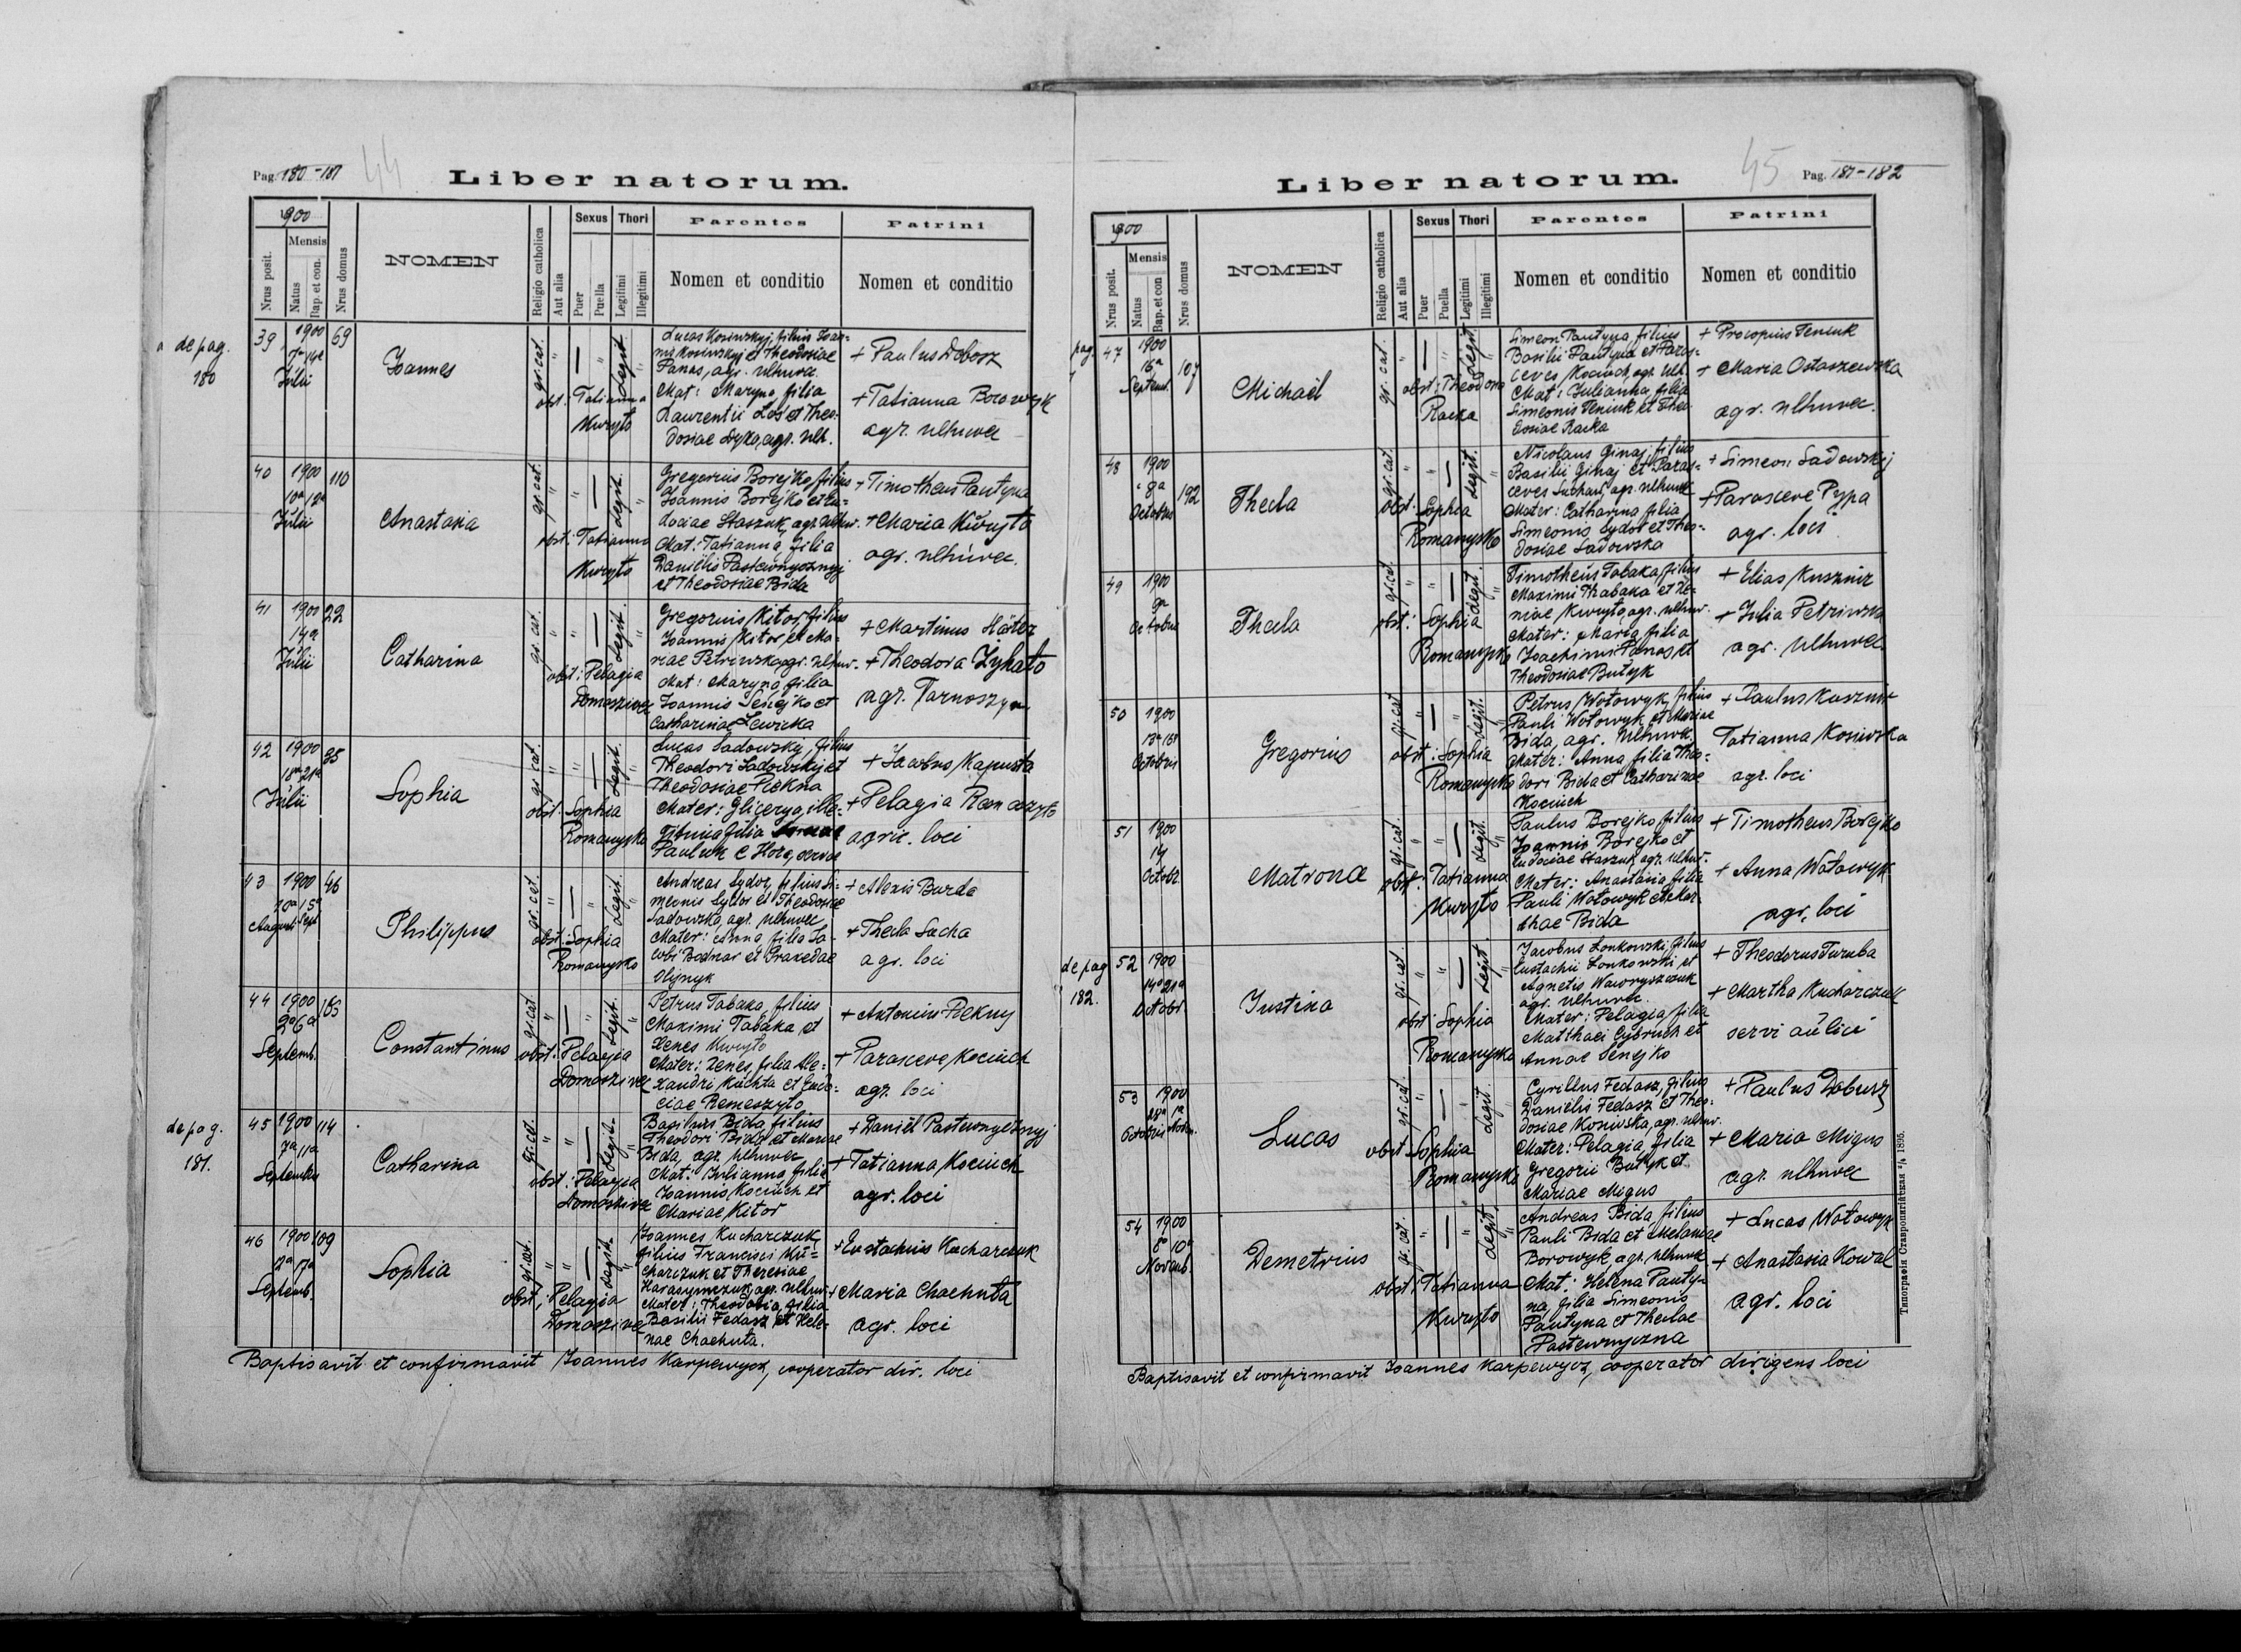 Pag. 180-181
44
Liber natorum.
1900
Nrus posit.
Mensis
Natus
Bap. et con.
Nrus domus
NOMEN
Religio catholica
Aut alia
Sexus
Puer
Puella
Thori
Legitimi
Illegitimi
Parentes
Nomen et conditio
Patrini
Nomen et conditio
de pag.
180
39
1900
7a 14a
Julii
69
Joannes
gr. cat.
Legit.
obst: Tatianna
Kuryło
Lucas Kosiwskyj, filius Joan-
nis Kosiwskyj et Theodosiae
Panas, agr. Ulhuvec.
Mat: Maryna, filia
Laurentii Łoś et Theo-
dosiae Dyko, agr. Ulh.
+ Paulus Dobosz
+ Tatianna Borowyk
agr. Ulhuvec
40
1900
10a 12a
Julii
110
Anastasia
gr. cat.
Legit.
obst: Tatianna
Kuryło
Gregorius Borejko, filius
Joannis Borejko et Eu-
dociae Staszuk, agr. Ulhuv.
Mat: Tatianna, filia
Daniëlis Pastewnycznyj
et Theodosiae Bida
+ Timotheus Pautyna
+ Maria Kuryło
agr. Ulhuvec.
41
1900
14a
Julii
22
Catharina
gr. cat.
Legit.
obst: Pelagia
Domaszivec
Gregorius Kitor, filius
Joannis Kitor, et Ma-
riae Petriwska, agr. Ulhuv.
Mat: Maryna, filia
Joannis Senejko et
Catharinae Lewicka
+ Martinus
+ Theodora
agr. Tarnoszyn
42
1900
18a 21a
Julii
35
Sophia
gr. cat.
Legit.
obst: Sophia
Romanysko
Lucas Sadowskij, filius
Theodori Sadowskij et
Theodosiae Piekna
Mater: Glicerya, ille-
gitima filia
Pauluk e Hora, servae
+ Jacobus Kapusta
+ Pelagia Remeszyło
agric. loci
43
1900
10a 15a
August. Sept.
46
Philippus
gr. cat.
Legit.
obst: Sophia
Romanysko
Andreas Sydor, filius Si-
meonis Sydor et Theodosiae
Sadowska, agr. Ulhuvec
Mater: Anna, filia Ja-
cobi Bodnar et Praxedae
Olijnyk
+ Alexis Burda
+ Thecla Sucha
agr. loci
44
1900
2a 6a
Septemb.
Constantinus
gr. cat.
Legit.
obst: Pelagia
Domaszivec
Petrus Tabaka, filius
Maximi Tabaka et
Xenes Kuryło
Mater: Xenes, filia Ale-
xandri Kuchta et Eudo-
ciae Remeszyło
+ Antonius Piekny
+ Parasceve Kociuch
agr. loci
de pag.
181.
45
1900
7a 11a
Septembr.
114
Catharina
gr. cat.
Legit.
obst: Pelagia
Domaszivec
Basilius Bida, filius
Theodori Bida et Mariae
Bida, agr. Ulhuvec
Mat: Julianna, filia
Joannis Kociuch et
Mariae Kitor
+ Daniël Pastewnycznyj
+ Tatianna Kociuch
agr. loci
46
1900
2a 17a
Septemb.
109
Sophia
gr. cat.
Legit.
obst: Pelagia
Domaszivec
Joannes Kucharczuk,
filius Francisci Ku-
charczuk et Theresiae
Harasymczuk, agr. Ulhuv.
Mater: Theodosia, filia
Basilii Fedasz et Hele-
nae Chachuta.
+ Eustachius Kucharczuk
+ Maria Chachuta
agr. loci
Baptisavit et confirmavit Joannes Karpewycz, cooperator dir. loci
45
Pag. 181-182
Liber natorum.
1900
Nrus posit.
Mensis
Natus
Bap. et con.
Nrus domus
NOMEN
Religio catholica
Aut alia
Sexus
Puer
Puella
Thori
Legitimi
Illegitimi
Parentes
Nomen et conditio
Patrini
Nomen et conditio
pag.
47
1900
16a
Septemb.
107
Michaël
gr. cat.
Legit.
obst: Theodora
Racka
Simeon Pautyna, filius
Basilii Pautyna et Paras-
ceves Kociuch, agr. Ulh.
Mat: Julianna, filia
Simeonis Teniuk et Theo-
dosiae Racka
+ Procopius Teniuk
+ Maria Ostaszewska
agr. Ulhuvec.
48
1900
8a
Octobris
192
Thecla
gr. cat.
Legit.
obst: Sophia
Romanysko
Nicolaus Ginaj, filius
Basilii Ginaj et Paras-
ceves Suchar, agr. Ulhuvec
Mater: Catharina filia
Simeonis Sydor et Theo-
dosiae Sadowska
+ Simeon Sadowskij
+ Parasceve Pypa
agr. loci
49
1900
9a
Octobris
Thecla
gr. cat.
Legit.
obst: Sophia
Romanysko
Timotheus Tabaka, filius
Maximi Thabaka et Xe-
niae Kuryło, agr. Ulhuv.
Mater: Maria, filia
Joachimi Panas et
Theodosiae Butyk
+ Elias Kusznir
+ Julia Petriwska
agr. Ulhuvec.
50
1900
13a 15a
Octobris
Gregorius
gr. cat.
Legit.
obst: Sophia
Romanysko
Petrus Wołowyk, filius
Pauli Wołowyk et Mariae
Bida, agr. Ulhuvec.
Mater: Anna filia Theo-
dori Bida et Catharinae
Kociuch
+ Paulus Kusznir
Tatianna Kosiwska
agr. loci
51
1900
14
Octobr.
Matrona
gr. cat.
Legit.
obst: Tatianna
Kuryło
Paulus Borejko filius
Joannis Borejko et
Eudociae Staszuk, agr. Ulhuv.
Mater: Anastasia, filia
Pauli Wołowyk et Mar-
thae Bida
+ Timotheus Borejko
+ Anna Wołowyk
agr. loci
de pag
182.
52
1900
14a 21a
Octobr.
Justina
gr. cat.
Legit.
obst: Sophia
Romanysko
Jacobus Łonkowski, filius
Eustachii Łonkowski et
Agnetis Wawryszczuk
agr. Ulhuvec.
Mater: Pelagia, filia
Matthaei Cybruch et
Annae Senejko
+ Theodorus Turuba
+ Martha Kucharczuk
servi aulici
53
1900
28a 1a
Octobris Novem.
Lucas
gr. cat.
Legit.
obst: Sophia
Romanysko
Cyrillus Fedasz, filius
Daniëlis Fedasz et Theo-
dosiae Kosiwska, agr. Ulhuv.
Mater: Pelagia, filia
Gregorii Butyk et
Mariae Migus
+ Paulus Dobusz
+ Maria Migus
agr. Ulhuvec
54
1900
8a 10a
Novemb.
Demetrius
gr. cat.
Legit.
obst: Tatianna
Kuryło
Andreas Bida, filius
Pauli Bida et Melaniae
Borowyk, agr. Ulhuvec
Mat: Helena Pauty-
na, filia Simeonis
Pautyna et Theclae
Pastewnyczna
+ Lucas Wołowyk
+ Anastasia Kowal
agr. loci
Baptisavit et confirmavit Joannes Karpewycz, cooperator dirigens loci
Типографія Ставропигійская 1895.